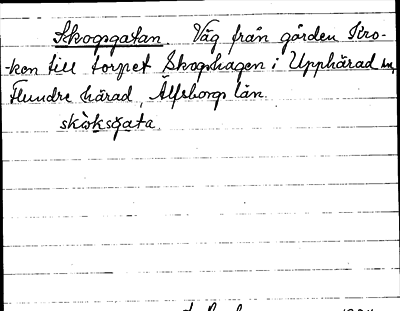 Skogsgatan. Väg från gården Kro-
-ken till torpet Skogshagen i Upphärad sn,
Flundre härad, Älfsborgs län.
skóksgata.